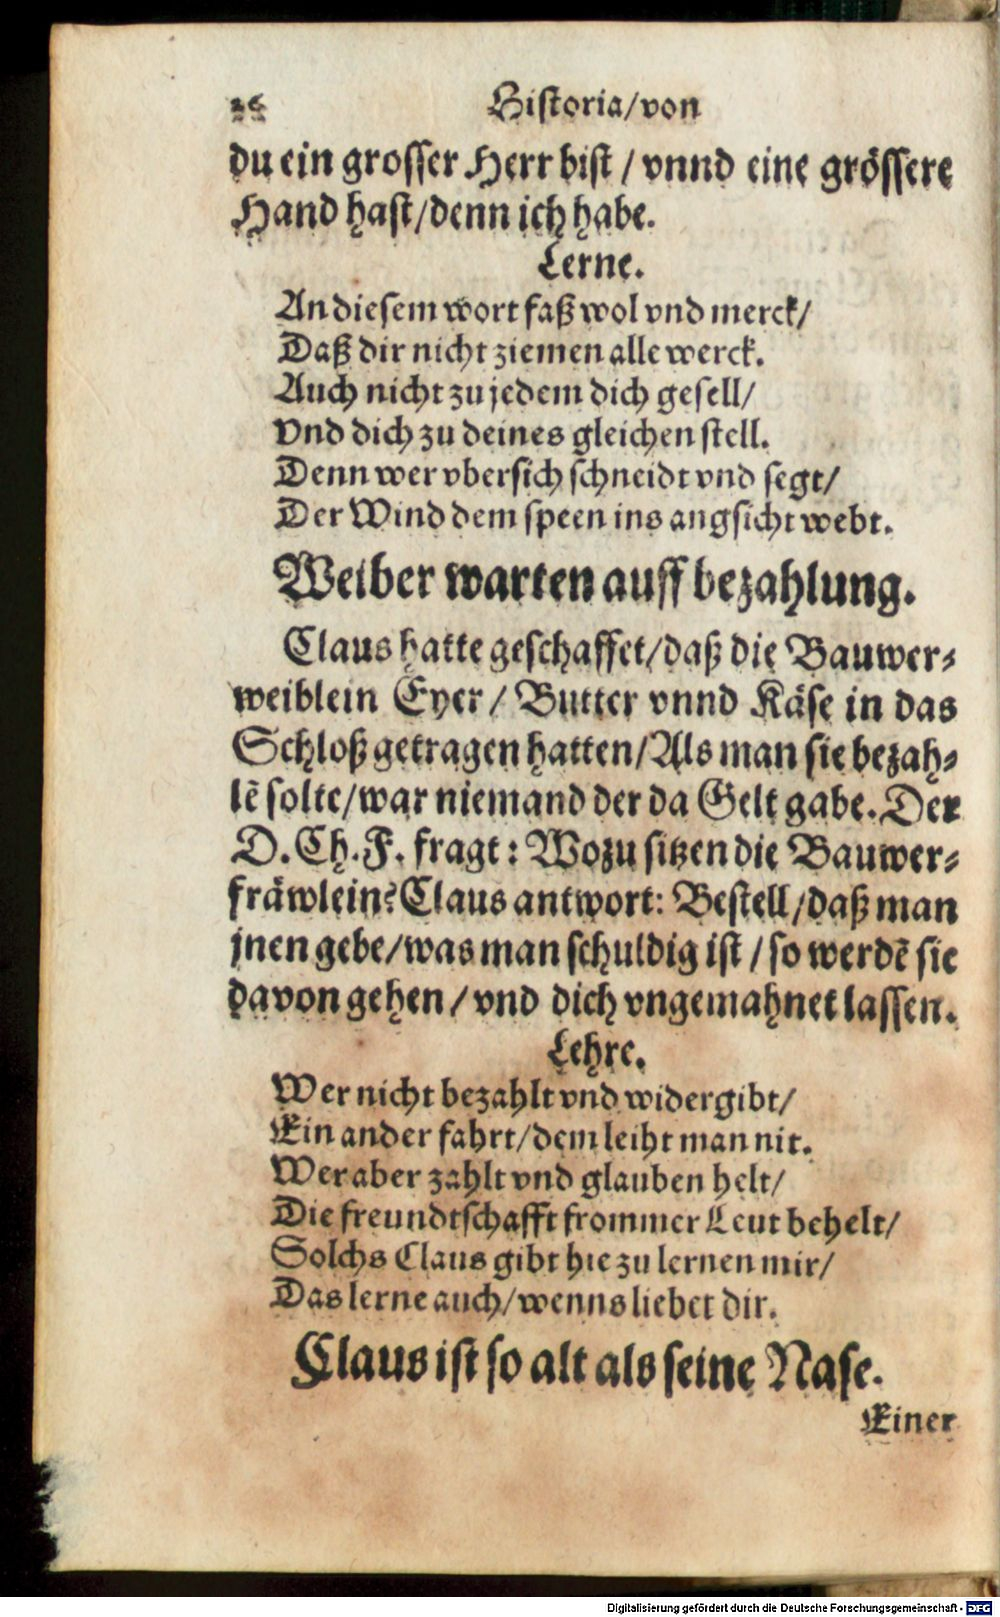 26 Historia/von
du ein grosser Herr bist / vnnd eine grössere
Hand hast/denn ich habe.
Lerne.
An diesem wort faß wol vnd merck/
Daß dir nicht ziemen alle werck.
Auch nicht zu jedem dich gesell/
Vnd dich zu deines gleichen stell.
Denn wer vbersich schneidt vnd segt/
Der Wind dem speen ins angsicht webt.
Weiber warten auff bezahlung.
Claus hatte geschaffet/daß die Bauwer-
weiblein Eyer / Butter vnnd Käse in das
Schloß getragen hatten/Als man sie bezah-
lẽ solte/war niemand der da Gelt gabe. Der
D. Ch. F. fragt: Wozu sitzen die Bauwer-
fräwlein? Claus antwort: Bestell/daß man
jnen gebe/was man schuldig ist / so werdẽ sie
davon gehen / vnd dich vngemahnet lassen.
Lehre.
Wer nicht bezahlt vnd widergibt/
Ein ander fahrt/dem leiht man nit.
Wer aber zahlt vnd glauben helt/
Die freundtschafft frommer Leut behelt/
Solchs Claus gibt hie zu lernen mir/
Das lerne auch/wenns liebet dir.
Claus ist so alt als seine Nase.
Einer
Digitalisierung gefördert durch die Deutsche Forschungsgemeinschaft - DFG